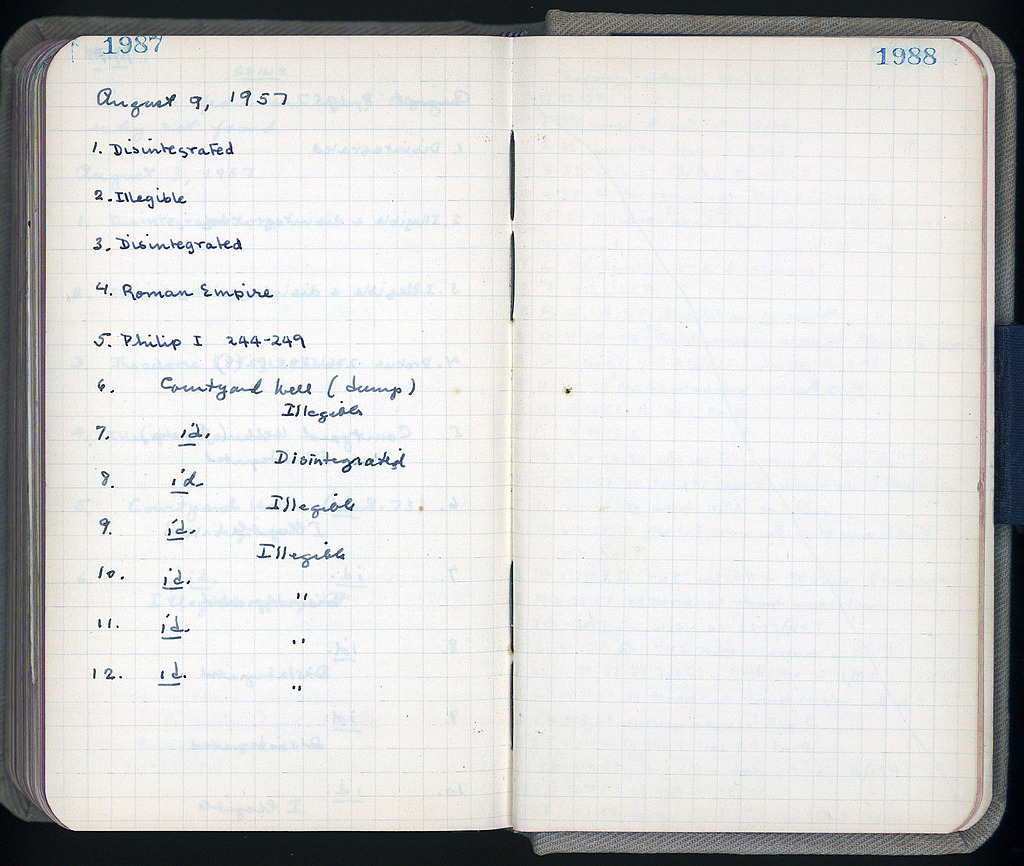 1987
1988
August 9, 1957
1. Disintegrated
2. Illegible
3. Disintegrated
4. Roman Empire
5. Philip I 244-249
6. Courtyard Well (dump)
Illegible
7. id.
Disintegrated
8. id.
Illegible
9. id.
Illegible
10. id.
"
11. id.
"
12. id.
"